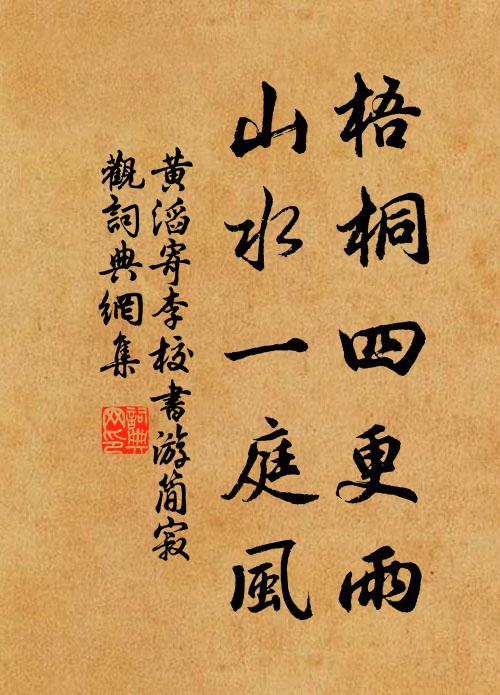 梧桐四更雨
山水一庭風
黃滔寄李校書游簡寂
觀詞典網集
詞典
网印